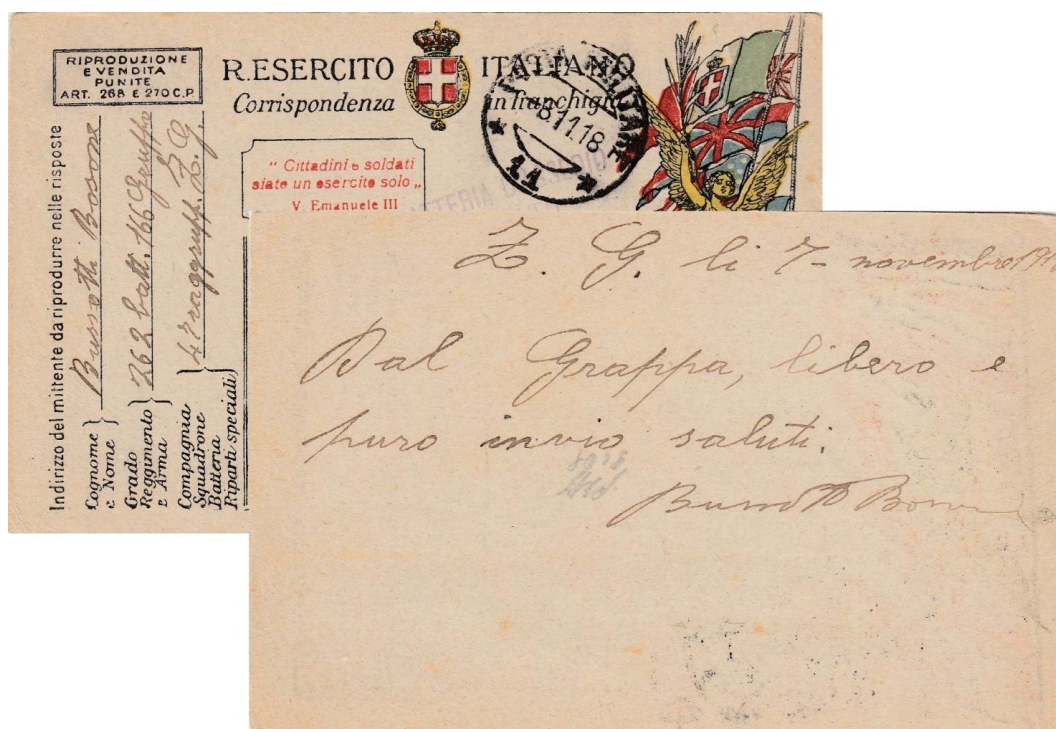 RIPRODUZIONE
E VENDITA
PUNITE
ART. 268 E 270 C.P.
R. ESERCITO ITALIANO
Corrispondenza in franchigia
POSTA MILITARE
8.11.18
11
"Cittadini e soldati
siate un esercito solo„
V. Emanuele III
BATTERIA ASSEDIO
Indirizzo del mittente da riprodurre nelle risposte
Cognome
e Nome
Grado
Reggimento
e Arma
262 batt. 166 Gruppo
Compagnia
Squadrone
Batteria
Riparti speciali
47 raggrupp. Z. G.
Z. G. li 7 - novembre
Dal Grappa, libero e
puro invio saluti.